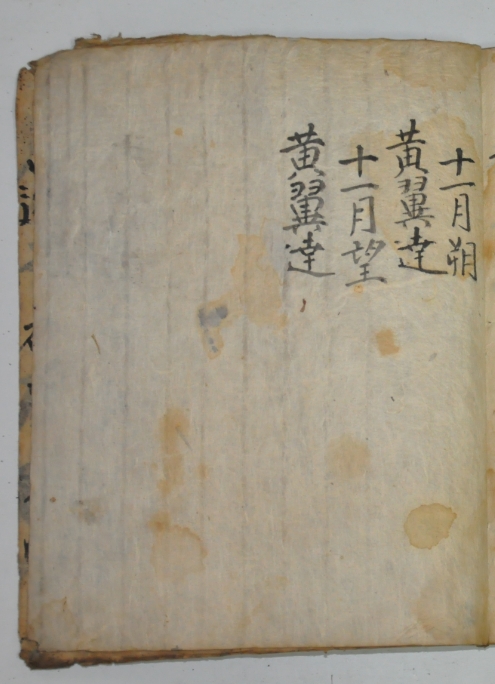 十一月朔
黃翼達
十一月望
黃翼達